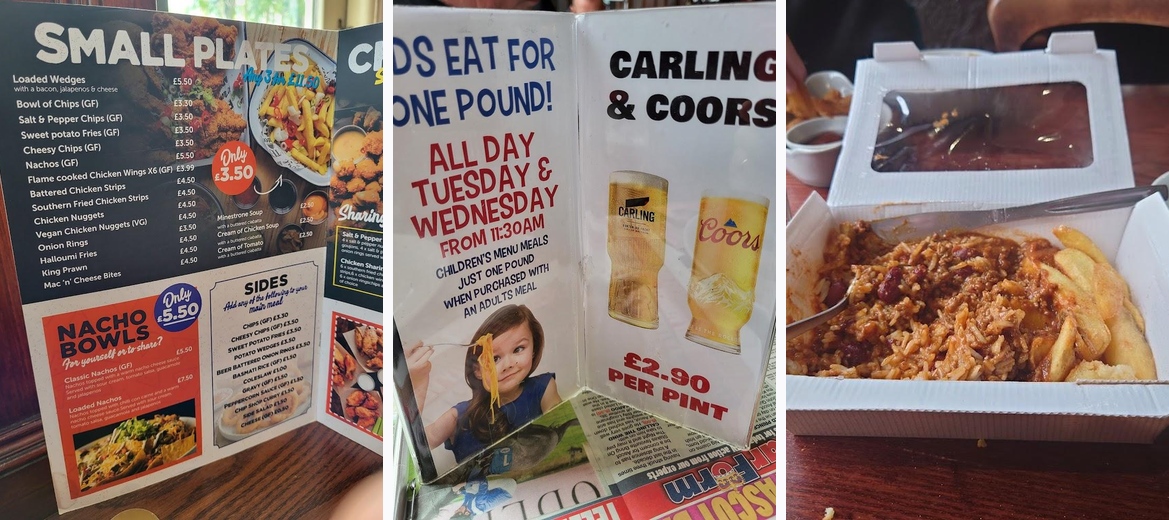 SMALL PLATES
Any 3 for £11.50
Loaded Wedges £5.50
with a bacon, jalapenos & cheese
Bowl of Chips (GF) £3.30
Salt & Pepper Chips (GF) £3.50
Sweet potato Fries (GF) £3.50
Cheesy Chips (GF) £3.50
Nachos (GF) £5.50
Flame cooked Chicken Wings X6 (GF) £3.99
Battered Chicken Strips £4.50
Southern Fried Chicken Strips £4.50
Chicken Nuggets £4.50
Vegan Chicken Nuggets (VG) £3.50
Onion Rings £4.50
Halloumi Fries £4.50
King Prawn £4.50
Mac 'n' Cheese Bites
Only
£3.50
Minestrone Soup
with a buttered ciabatta
Cream of Chicken Soup
with a buttered ciabatta
Cream of Tomato
with a buttered ciabatta
NACHO
BOWLS
Only
£5.50
For yourself or to share?
Classic Nachos (GF) £5.50
Loaded Nachos £7.50
SIDES
Add any of the following to your
main meal
CHIPS (GF) £3.30
CHEESY CHIPS (GF) £3.50
SWEET POTATO FRIES (GF) £3.50
POTATO WEDGES £3.50
BEER BATTERED ONION RINGS £3.50
BASMATI RICE (GF) £1.50
COLESLAW £1.00
GRAVY (GF) £1.50
PEPPERCORN SAUCE (GF) £1.50
CHIP SHOP CURRY £1.50
Sharing
Salt & Pepper
Chicken Sharing
DS EAT FOR
ONE POUND!
ALL DAY
TUESDAY &
WEDNESDAY
FROM 11:30AM
CHILDREN'S MENU MEALS
JUST ONE POUND
WHEN PURCHASED WITH
AN ADULTS MEAL
CARLING
& COORS
CARLING
Coors
£2.90
PER PINT